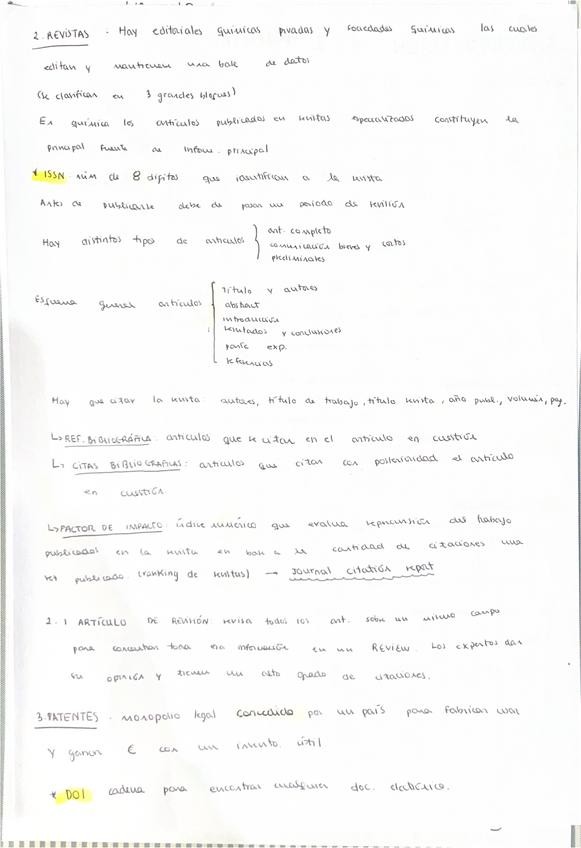 2. REVISTAS · Hay editoriales químicas privadas y sociedades químicas las cuales
editan y mantienen una base de datos
(se clasifican en 3 grandes bloques)
En química los artículos publicados en revistas especializadas constituyen la
principal fuente de inform. principal
* ISSN núm de 8 dígitos que identifican a la revista
Antes de publicarse debe de pasar un periodo de revisión
Hay distintos tipo de artículos { art. completo
comunicación breves y cartas
preliminares
Esquema general artículos [ título y autores
abstract
introducción
resultados y conclusiones
parte exp.
referencias
Hay que citar la revista: autores, título de trabajo, título revista, año publ., volumen, pag.
↳ REF. BIBLIOGRÁFICA: artículos que se citan en el artículo en cuestión
↳ CITAS BIBLIOGRAFICAS: artículos que citan con posterioridad el artículo
en cuestión
↳ FACTOR DE IMPACTO índice numérico que evalua repercusión del trabajo
publicados en la revista en base a la cantidad de citaciones una
vez publicado. (ranking de revistas) → Journal citation report
2.1 ARTÍCULO DE REVISIÓN: revisa todos los art. sobre un mismo campo
para concentrar toda esa información en un REVIEW. Los expertos dan
su opinión y tienen un alto grado de citaciones.
3. PATENTES - monopolio legal concedido por un país para fabricar usar
y ganar € con un invento útil
* DOI cadena para encontrar cualquier doc. electrónico.